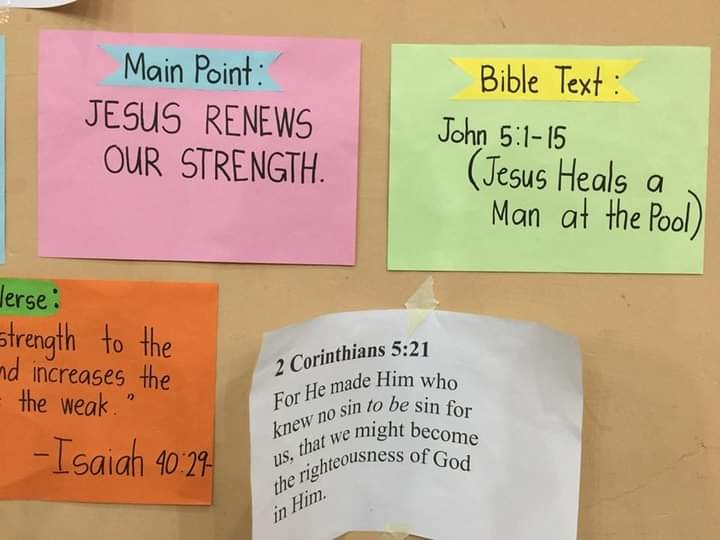 Main Point:
JESUS RENEWS
OUR STRENGTH.
Bible Text:
John 5:1-15
(Jesus Heals a
Man at the Pool)
Verse:
strength to the
and increases the
the weak."
-Isaiah 40:29-
2 Corinthians 5:21
For He made Him who
knew no sin to be sin for
us, that we might become
the righteousness of God
in Him.